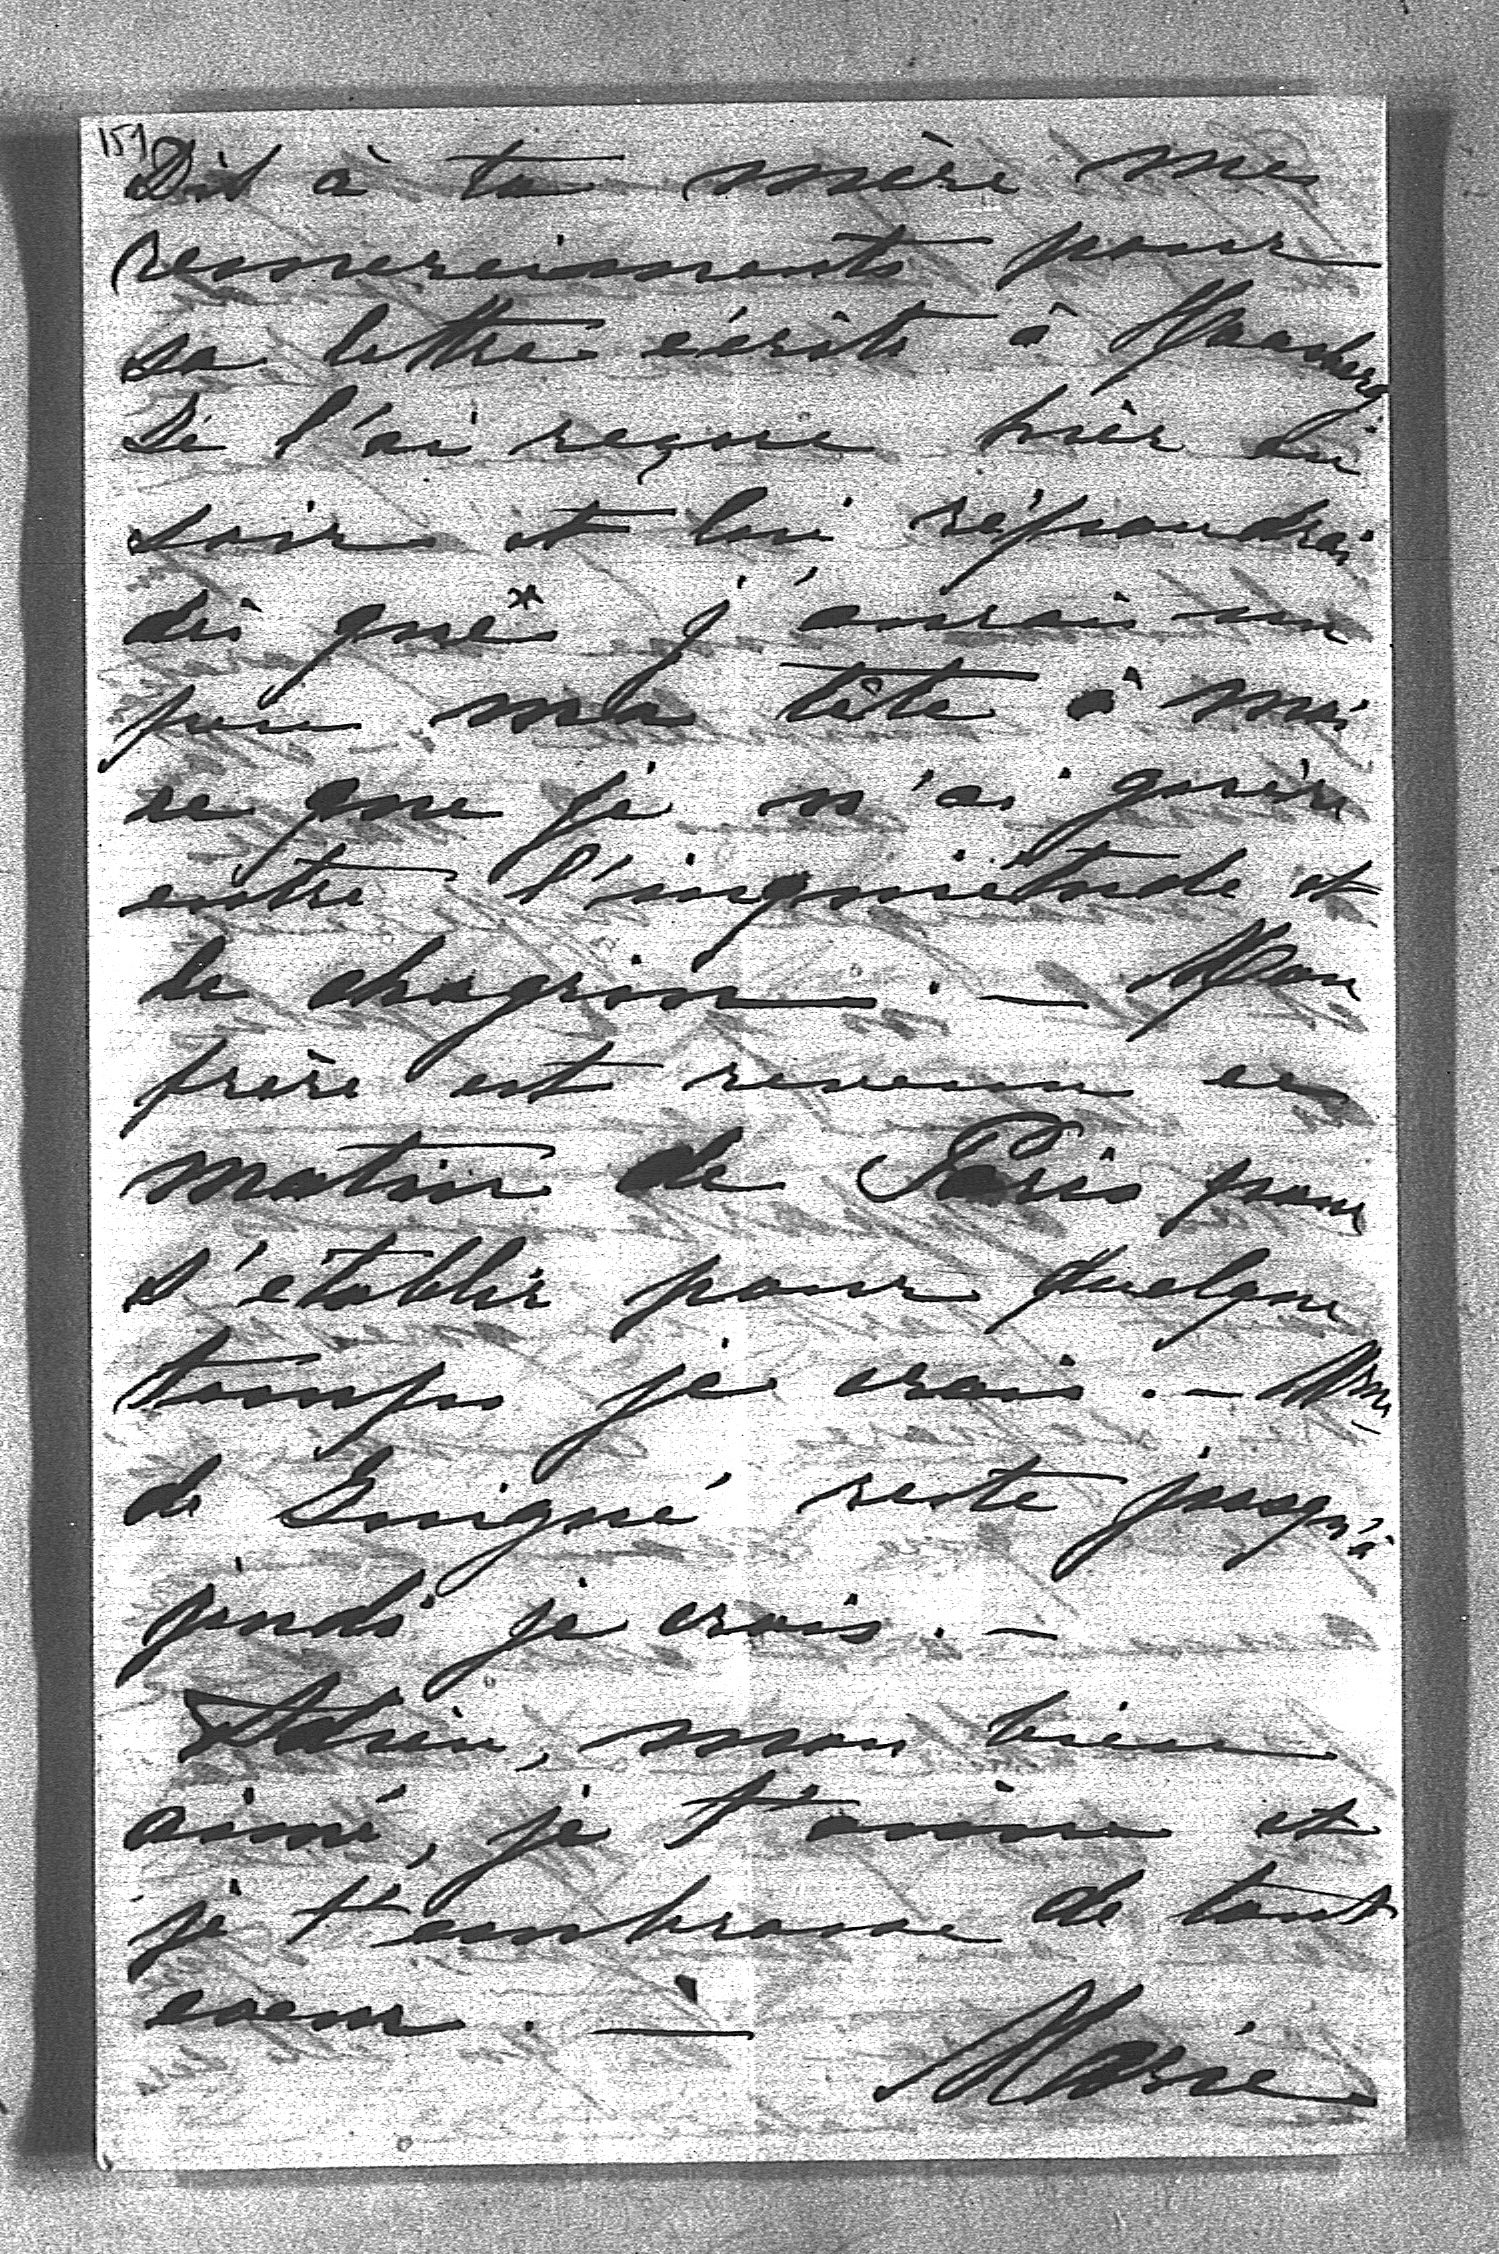 151
Dis à ta mère mes
remerciements pour
sa lettre écrite à
Je l'ai reçue hier au
soir et lui répondrai
dès que j'aurai un
peu ma tête à moi
ce que je n'ai guère
entre l'inquiétude et
le chagrin. — Mon
frère est revenu ce
matin de Paris pour
s'établir pour quelque
temps je crois. — Mme
de Guigné reste jusqu'à
jeudi je crois. —
Adrien, mon bien
aimé, je t'aime et
je t'embrasse de tout
coeur. —
Marie